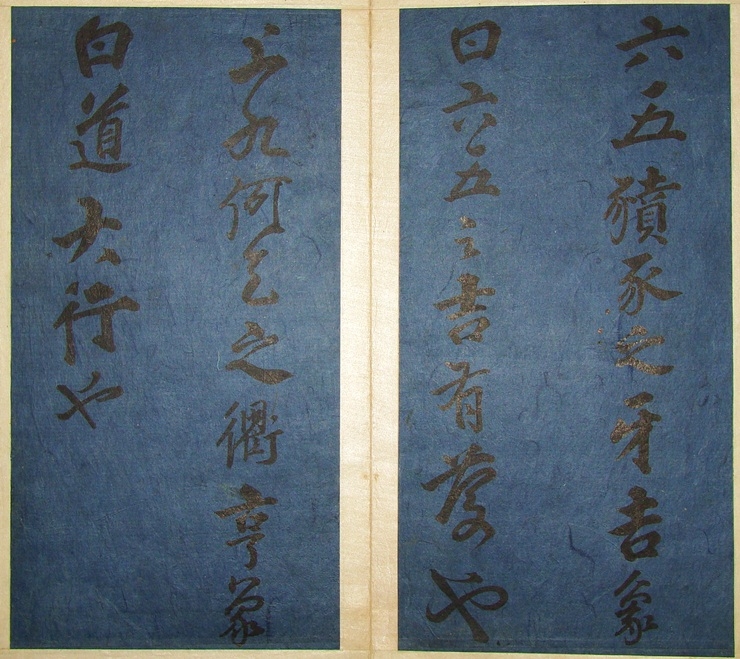 六五豶豕之牙吉象
曰六五之吉有慶也
上九何天之衢亨象
曰道大行也